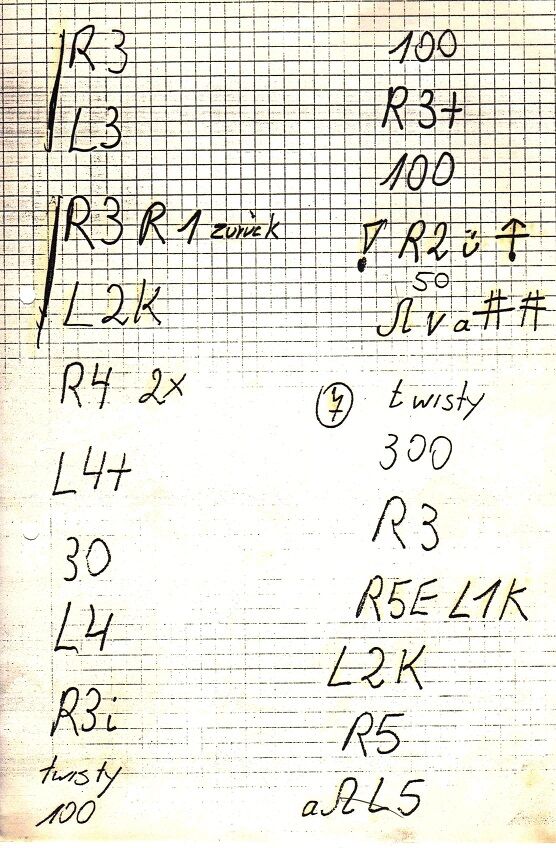 R3
L3
R3 R1 zurück
L2K
R4 2x
L4+
30
L4
R3i
twisty
100
100
R3+
100
! R2 ü
50
Ω v a # #
7 twisty
300
R3
R5E L1K
L2K
R5
a Ω L5